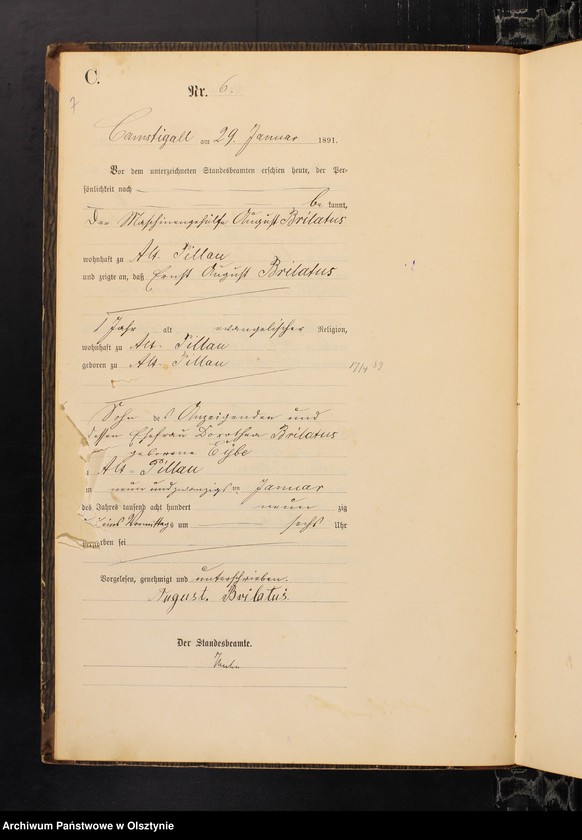 C.
Nr. 6.
7
Camstigall am 29. Januar 1891.
Vor dem unterzeichneten Standesbeamten erschien heute, der Per-
sönlichkeit nach
be kannt,
Der Maschinengehülfe August Brilatus
wohnhaft zu Alt Pillau
und zeigte an, daß Ernst August Brilatus
1 Jahr alt evangelischer Religion,
wohnhaft zu Alt-Pillau
geboren zu Alt-Pillau
Sohn des Anzeigenden und
dessen Ehefrau Dorothea Brilatus
geborene Eybe
Alt-Pillau
neun und zwanzigsten Januar
des Jahres tausend acht hundert neun zig
eins Vormittags um sechs Uhr
rben sei
Vorgelesen, genehmigt und unterschrieben.
August. Brilatus.
Der Standesbeamte.
Archiwum Państwowe w Olsztynie